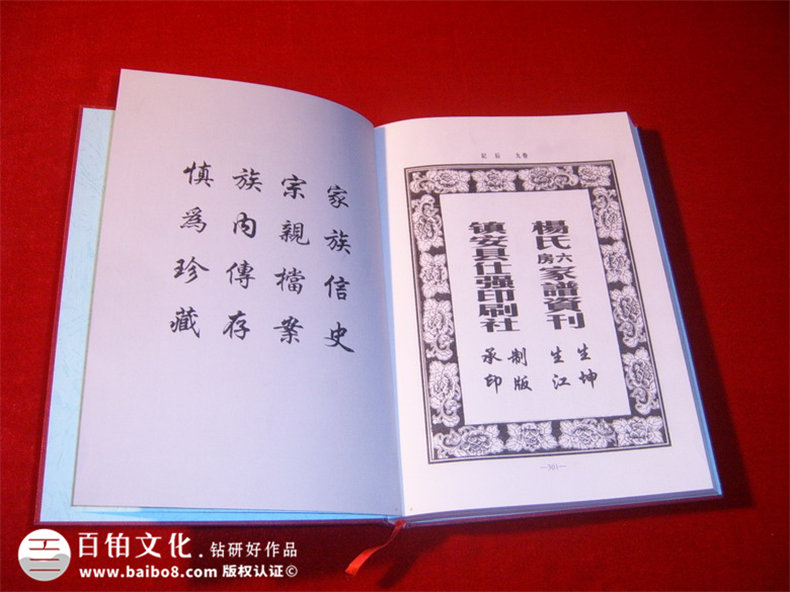 家族信史
宗親檔案
族内傳存
慎爲珍藏
卷九 后記
楊氏六房家譜資刊
生坤
生江
镇安县仕强印刷社
制版
承印
—301—
百铂文化.钻研好作品
www.baibo8.com 版权认证©